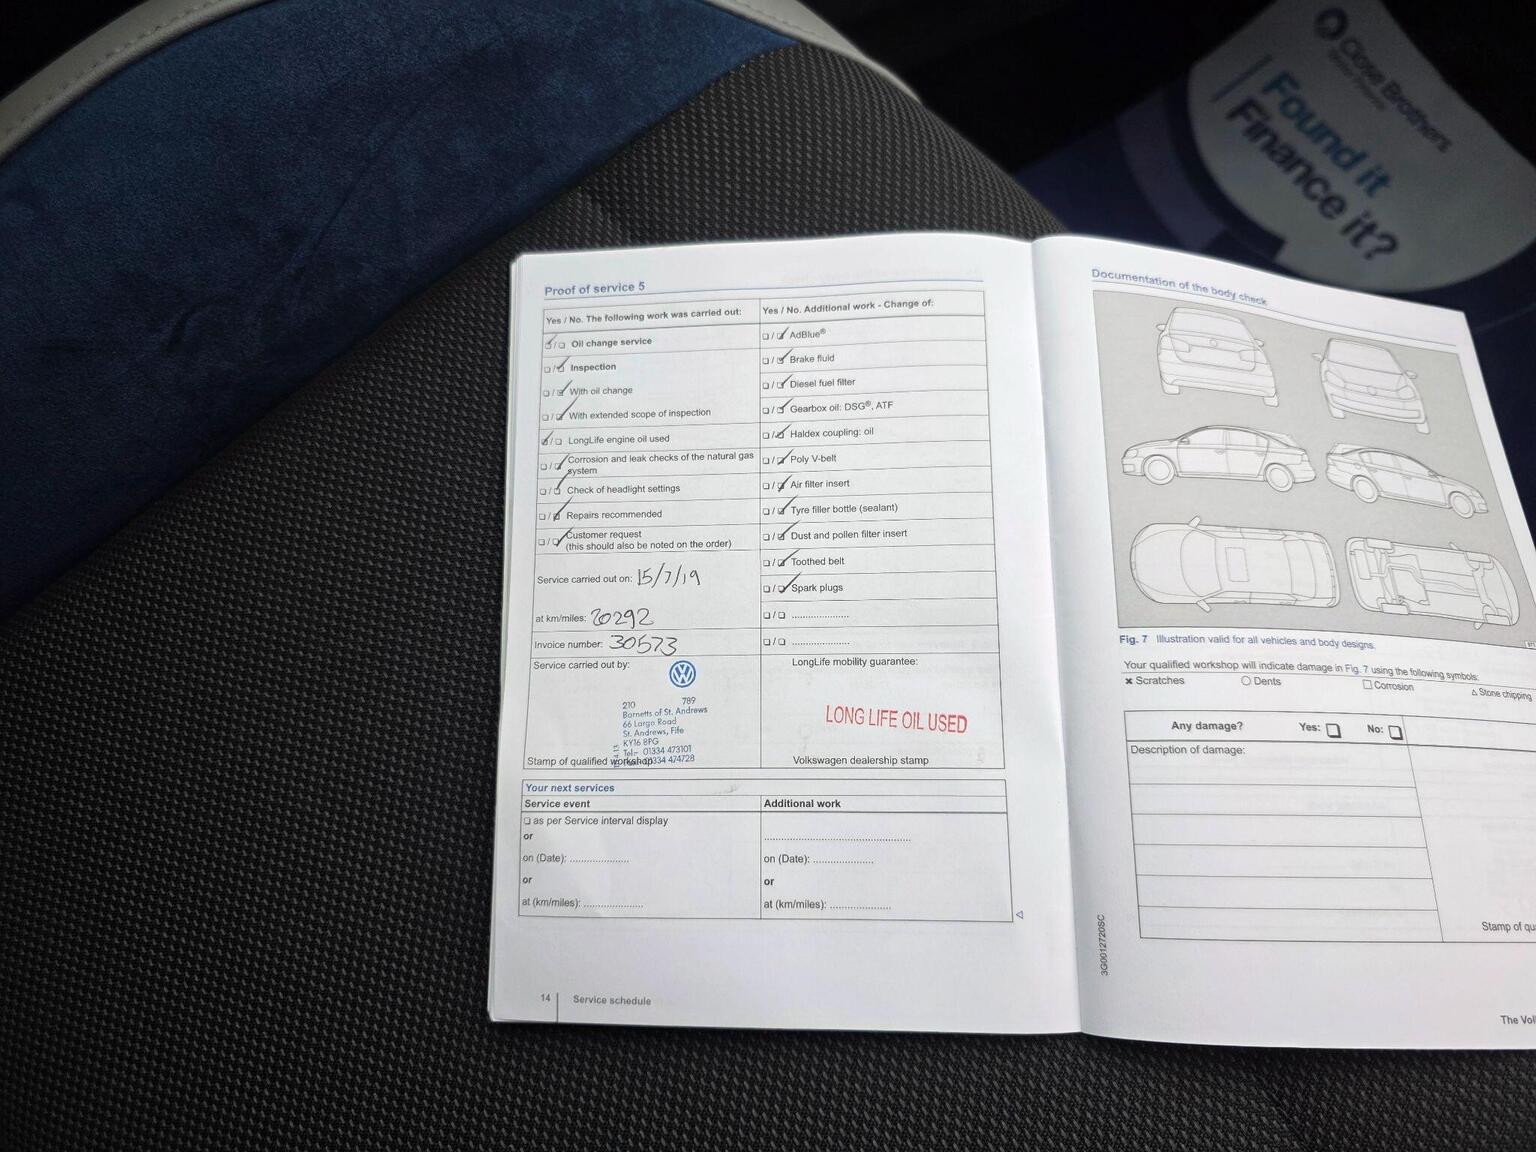 Close Brothers
Motor Finance
Found it
Finance it?
Proof of service 5
Yes / No. The following work was carried out:
Oil change service
Inspection
With oil change
With extended scope of inspection
LongLife engine oil used
Corrosion and leak checks of the natural gas
system
Check of headlight settings
Repairs recommended
Customer request
(this should also be noted on the order)
Service carried out on: 15/7/19
at km/miles: 20292
Invoice number: 30573
Service carried out by:
210 789
Barnetts of St. Andrews
66 Largo Road
St. Andrews, Fife
KY16 8PG
Tel:- 01334 473101
01334 474728
Stamp of qualified workshop
Yes / No. Additional work - Change of:
AdBlue®
Brake fluid
Diesel fuel filter
Gearbox oil: DSG®, ATF
Haldex coupling: oil
Poly V-belt
Air filter insert
Tyre filler bottle (sealant)
Dust and pollen filter insert
Toothed belt
Spark plugs
LongLife mobility guarantee:
LONG LIFE OIL USED
Volkswagen dealership stamp
Your next services
Service event
as per Service interval display
or
on (Date): .....................
or
at (km/miles): .....................
Additional work
on (Date): .....................
or
at (km/miles): .....................
14 Service schedule
Documentation of the body check
Fig. 7 Illustration valid for all vehicles and body designs.
Your qualified workshop will indicate damage in Fig. 7 using the following symbols:
Scratches
Dents
Corrosion
Stone chipping
Any damage? Yes: No:
Description of damage:
Stamp of qu
3G0012720SC
The Vol